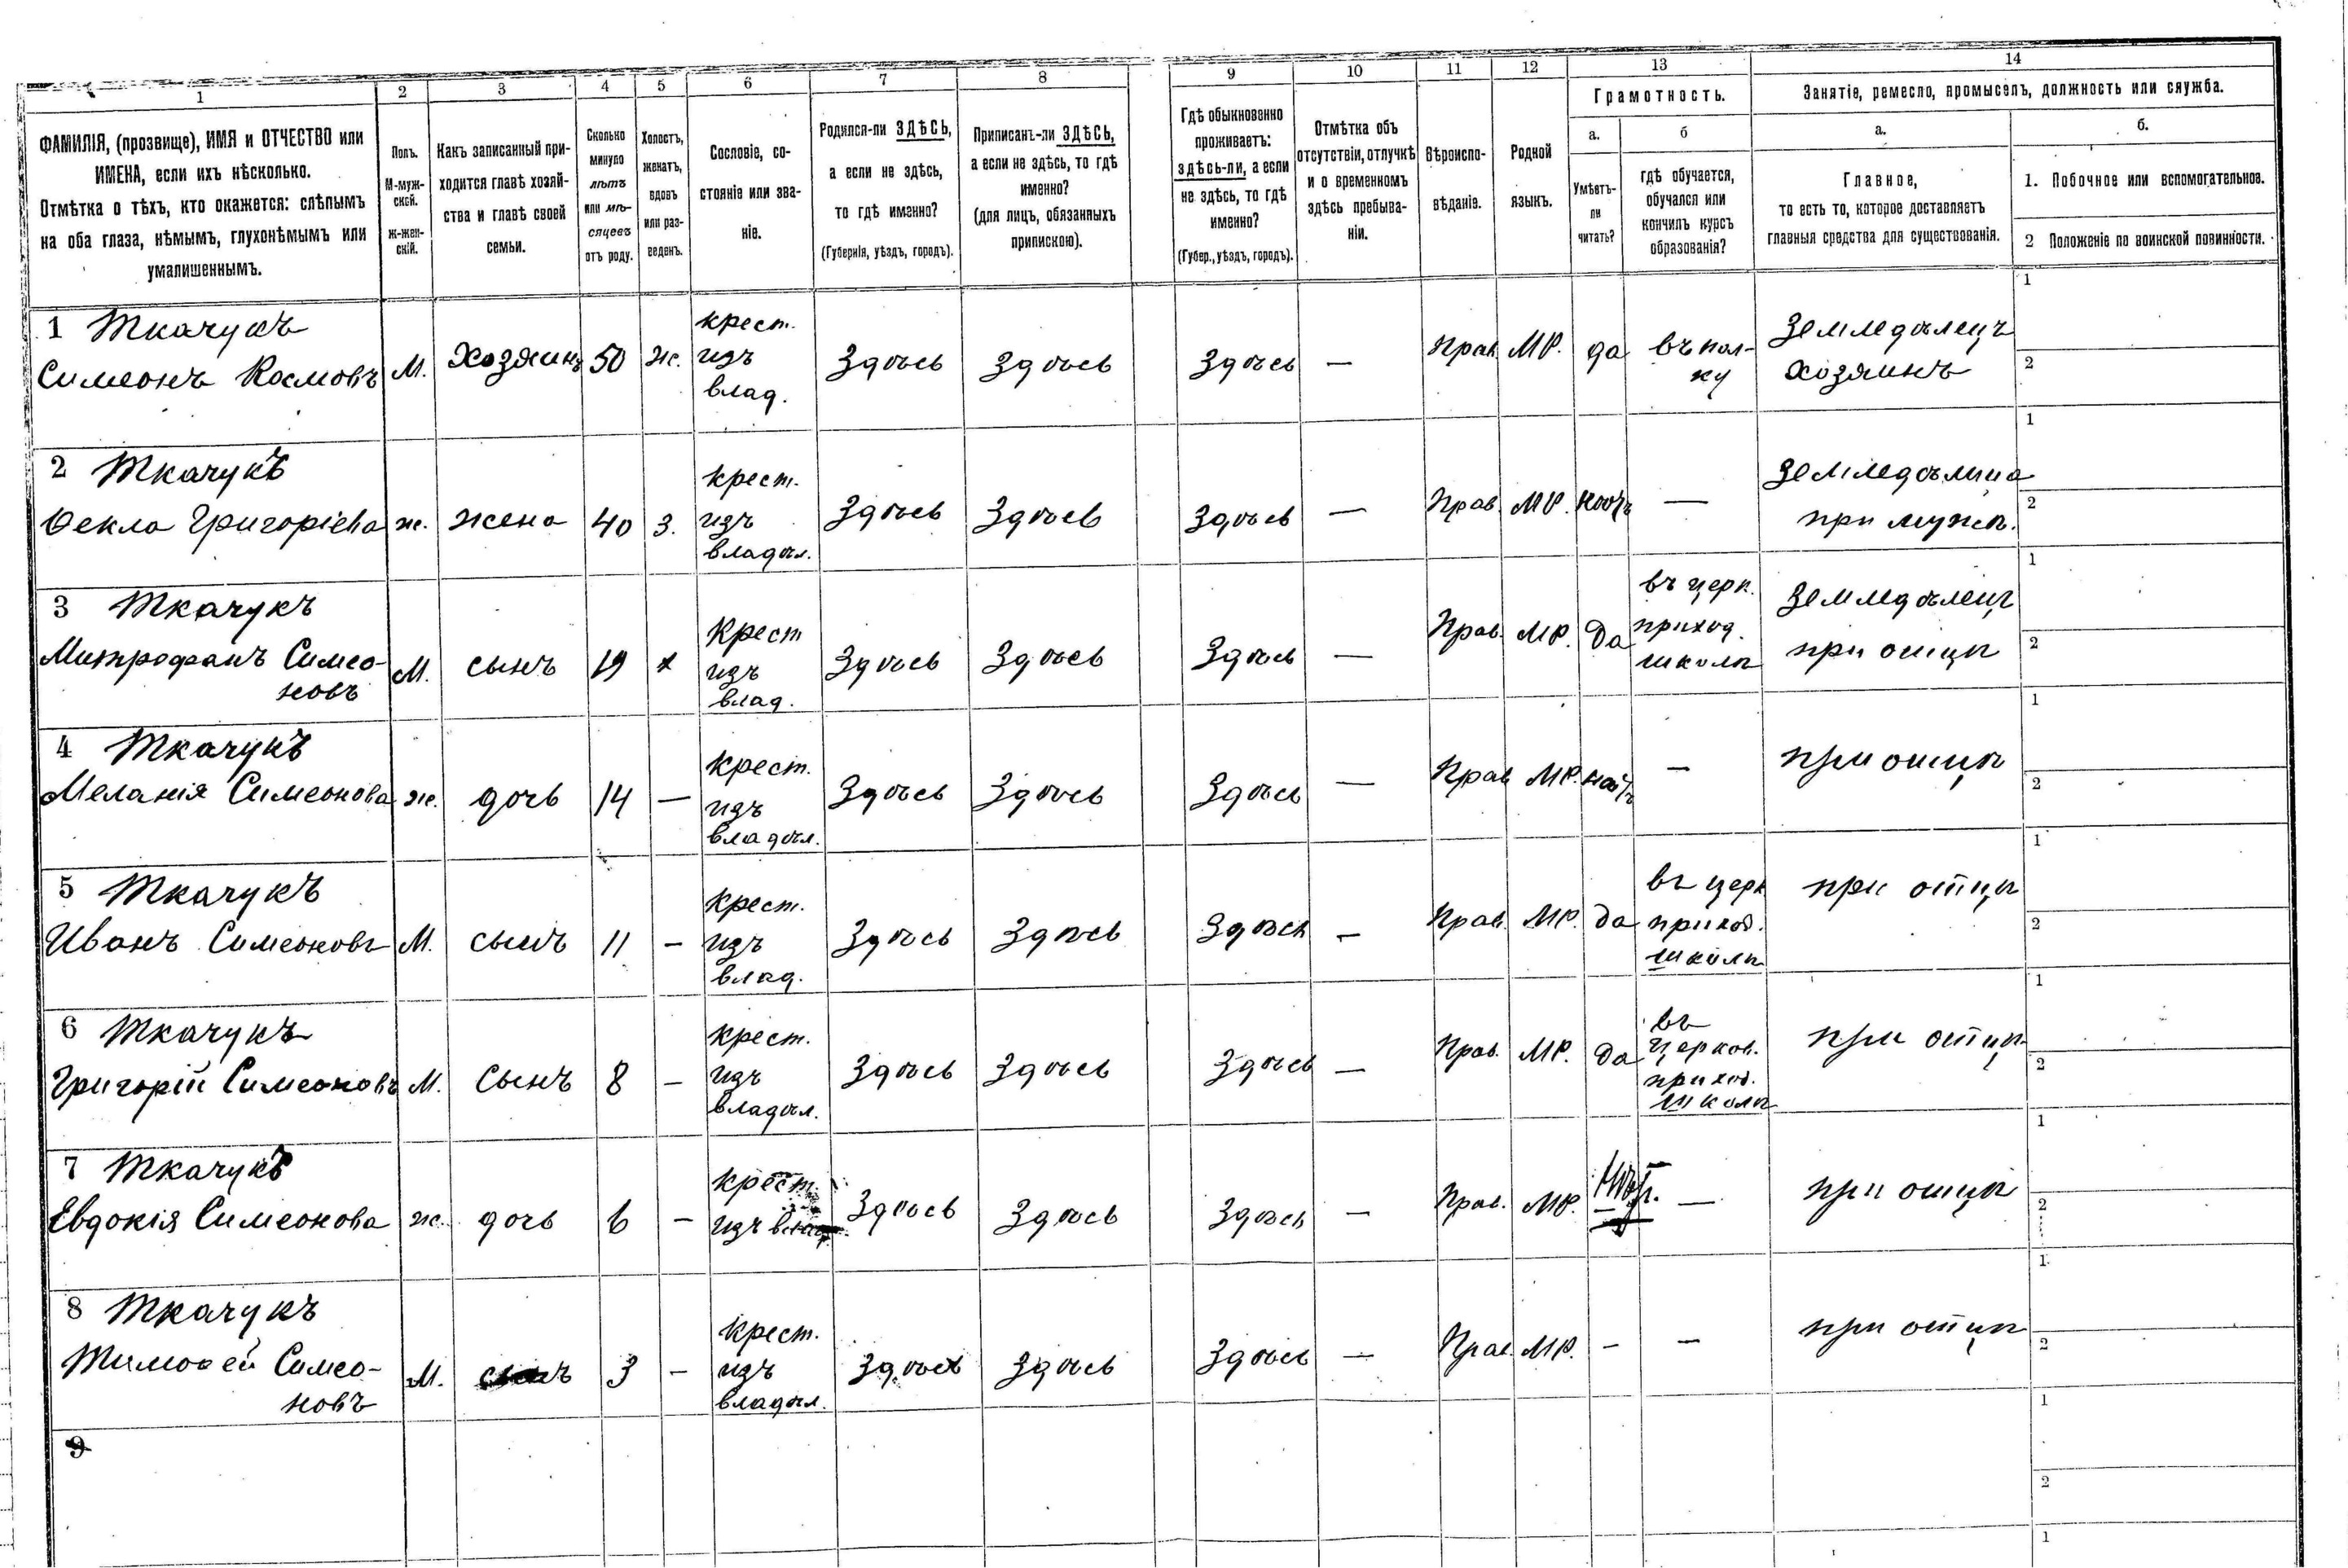 1 2 3 4 5 6 7 8 9 10 11 12 13 14
ФАМИЛІЯ, (прозвище), ИМЯ и ОТЧЕСТВО или
ИМЕНА, если ихъ нѣсколько.
Отмѣтка о тѣхъ, кто окажется: слѣпымъ
на оба глаза, нѣмымъ, глухонѣмымъ или
умалишеннымъ.
Полъ.
М-муж-
ской.
ж-жен-
скій.
Какъ записанный при-
ходится главѣ хозяй-
ства и главѣ своей
семьи.
Сколько
минуло
лѣтъ
или мѣ-
сяцевъ
отъ роду.
Холостъ,
женатъ,
вдовъ
или раз-
веденъ.
Сословіе, со-
стояніе или зва-
ніе.
Родился-ли ЗДѢСЬ,
а если не здѣсь,
то гдѣ именно?
(Губернія, уѣздъ, городъ).
Приписанъ-ли ЗДѢСЬ,
а если не здѣсь, то гдѣ
именно?
(для лицъ, обязанныхъ
припискою).
Гдѣ обыкновенно
проживаетъ:
здѣсь-ли, а если
не здѣсь, то гдѣ
именно?
(Губер., уѣздъ, городъ).
Отмѣтка объ
отсутствіи, отлучкѣ
и о временномъ
здѣсь пребыва-
ніи.
Вѣроиспо-
вѣданіе.
Родной
языкъ.
Грамотность.
а.
Умѣетъ-
ли
читать?
б
гдѣ обучается,
обучался или
кончилъ курсъ
образованія?
Занятіе, ремесло, промыселъ, должность или служба.
а.
Главное,
то есть то, которое доставляетъ
главныя средства для существованія.
б.
1. Побочное или вспомогательное.
2 Положеніе по воинской повинности.
1 Ткачукъ
Симеонъ Космовъ
М.
Хозяинъ
50
ж.
крест.
изъ
влад.
Здѣсь
Здѣсь
Здѣсь
—
Прав.
МР.
да
въ пол-
ку
Земледѣлецъ
хозяинъ
1
2
2 Ткачукъ
Ѳекла Григоріева
ж.
жена
40
З.
крест.
изъ
владѣл.
Здѣсь
Здѣсь
Здѣсь
—
Прав.
МР.
нѣтъ
—
Земледѣлица
при мужѣ.
1
2
3 Ткачукъ
Митрофанъ Симео-
новъ
М.
сынъ
19
х
Крест
изъ
влад.
Здѣсь
Здѣсь
Здѣсь
—
Прав.
МР.
Да
въ церк.
приход.
школѣ
Земледѣлецъ
при отцѣ
1
2
4 Ткачукъ
Меланія Симеонова
ж.
дочь
14
—
крест.
изъ
владѣл.
Здѣсь
Здѣсь
Здѣсь
—
Прав
МР.
нѣтъ
—
при отцѣ
1
2
5 Ткачукъ
Иванъ Симеоновъ
М.
сынъ
11
—
крест.
изъ
влад.
Здѣсь
Здѣсь
Здѣсь
—
Прав.
МР.
да
въ церк
приход.
школѣ
при отцѣ
1
2
6 Ткачукъ
Григорій Симеоновъ
М.
сынъ
8
—
крест.
изъ
владѣл.
Здѣсь
Здѣсь
Здѣсь
—
Прав.
МР.
да
въ
церков.
приход.
школѣ
при отцѣ
1
2
7 Ткачукъ
Евдокія Симеонова
ж.
дочь
6
—
крест.
изъ влад.
Здѣсь
Здѣсь
Здѣсь
—
Прав.
МР.
нѣтъ.
—
при отцѣ
1
2
8 Ткачукъ
Тимоѳей Симео-
новъ
М.
сынъ
3
—
крест.
изъ
владѣл.
Здѣсь
Здѣсь
Здѣсь
—
Прав.
МР.
—
—
при отцѣ
1
2
9
1
2
1